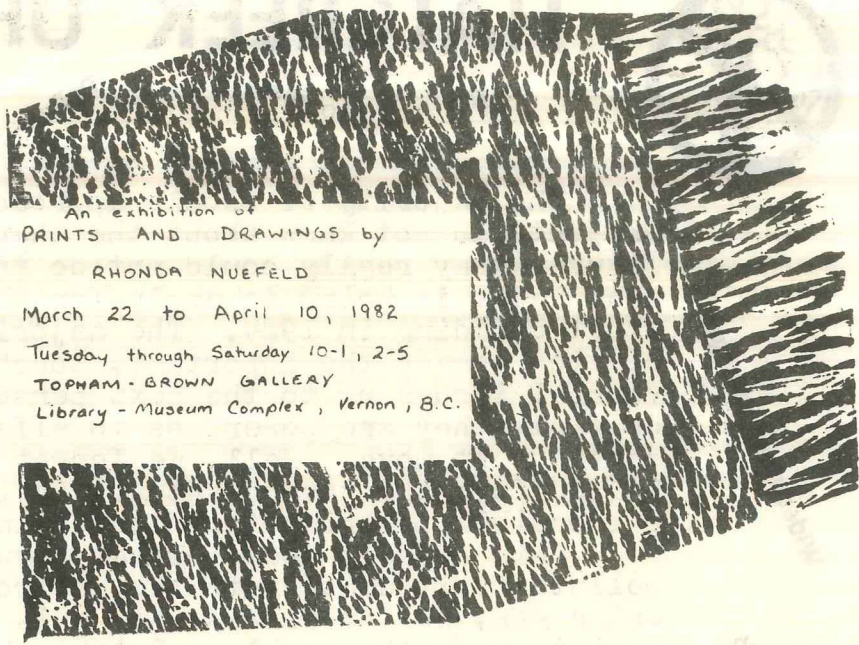 An exhibition of
PRINTS AND DRAWINGS by
RHONDA NUEFELD
March 22 to April 10, 1982
Tuesday through Saturday 10-1, 2-5
TOPHAM - BROWN GALLERY
Library - Museum Complex, Vernon, B.C.